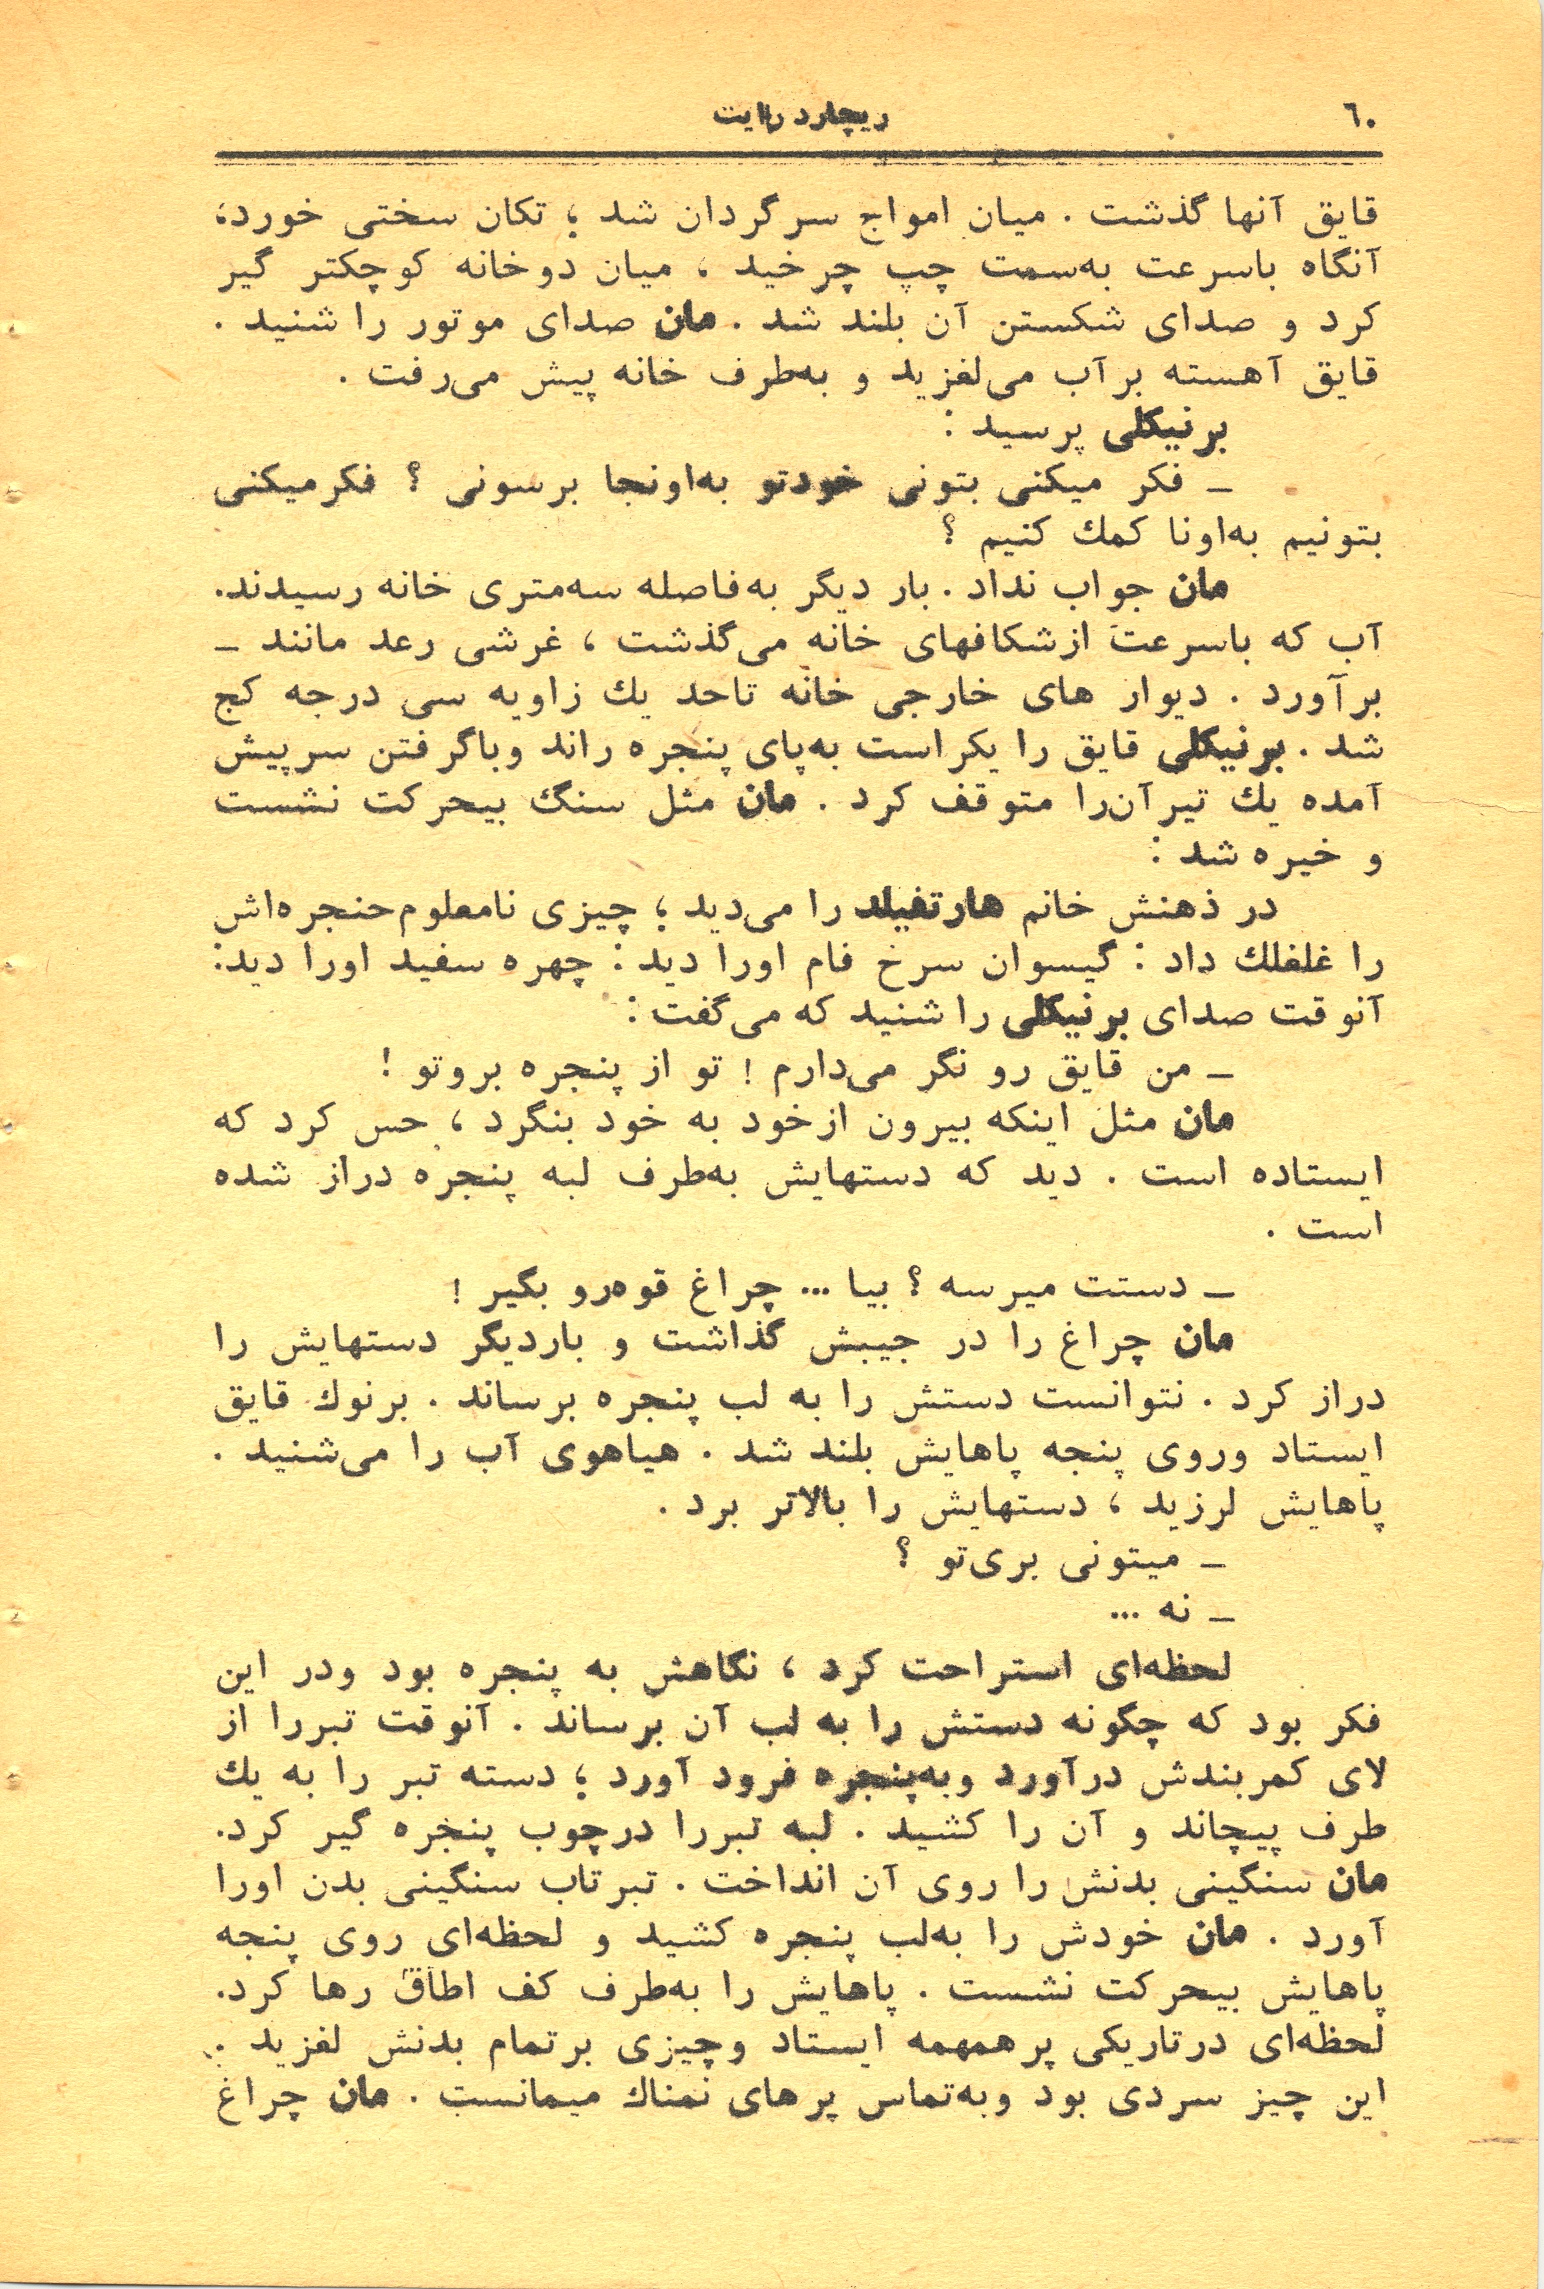 ٦٠
ریچارد رایت
قایق آنها گذشت . میان امواج سرگردان شد ؛ تکان سختی خورد،
آنگاه باسرعت به‌سمت چپ چرخید ، میان دوخانه کوچکتر گیر
کرد و صدای شکستن آن بلند شد . مان صدای موتور را شنید .
قایق آهسته برآب می‌لغزید و به‌طرف خانه پیش می‌رفت .
برنیکلی پرسید :
ـ فکر میکنی بتونی خودتو به‌اونجا برسونی ؟ فکرمیکنی
بتونیم به‌اونا کمك کنیم ؟
مان جواب نداد . بار دیگر به‌فاصله سه‌متری خانه رسیدند.
آب که باسرعت ازشکافهای خانه می‌گذشت ، غرشی رعد مانند ـ
برآورد . دیوار های خارجی خانه تاحد یك زاویه سی درجه کج
شد . برنیکلی قایق را یکراست به‌پای پنجره راند وباگرفتن سرپیش
آمده یك تیرآن‌را متوقف کرد . مان مثل سنگ بیحرکت نشست
و خیره شد :
در ذهنش خانم هارتفیلد را می‌دید ؛ چیزی نامعلوم‌حنجره‌اش
را غلغلك داد : گیسوان سرخ فام اورا دید : چهره سفید اورا دید:
آنوقت صدای برنیکلی را شنید که می‌گفت :
ـ من قایق رو نگر می‌دارم ! تو از پنجره بروتو !
مان مثل اینکه بیرون ازخود به خود بنگرد ، حس کرد که
ایستاده است . دید که دستهایش به‌طرف لبه پنجره دراز شده
است .
ـ دستت میرسه ؟ بیا ... چراغ قوه‌رو بگیر !
مان چراغ را در جیبش گذاشت و باردیگر دستهایش را
دراز کرد . نتوانست دستش را به لب پنجره برساند . برنوك قایق
ایستاد وروی پنجه پاهایش بلند شد . هیاهوی آب را می‌شنید .
پاهایش لرزید ، دستهایش را بالاتر برد .
ـ میتونی بری‌تو ؟
ـ نه ...
لحظه‌ای استراحت کرد ، نگاهش به پنجره بود ودر این
فکر بود که چگونه دستش را به لب آن برساند . آنوقت تبررا از
لای کمربندش درآورد وبه‌پنجره فرود آورد ؛ دسته تبر را به یك
طرف پیچاند و آن را کشید . لبه تبررا درچوب پنجره گیر کرد.
مان سنگینی بدنش را روی آن انداخت . تبرتاب سنگینی بدن اورا
آورد . مان خودش را به‌لب پنجره کشید و لحظه‌ای روی پنجه
پاهایش بیحرکت نشست . پاهایش را به‌طرف کف اطاق رها کرد.
لحظه‌ای درتاریکی پرهمهمه ایستاد وچیزی برتمام بدنش لغزید .
این چیز سردی بود وبه‌تماس پرهای نمناك میمانست . مان چراغ